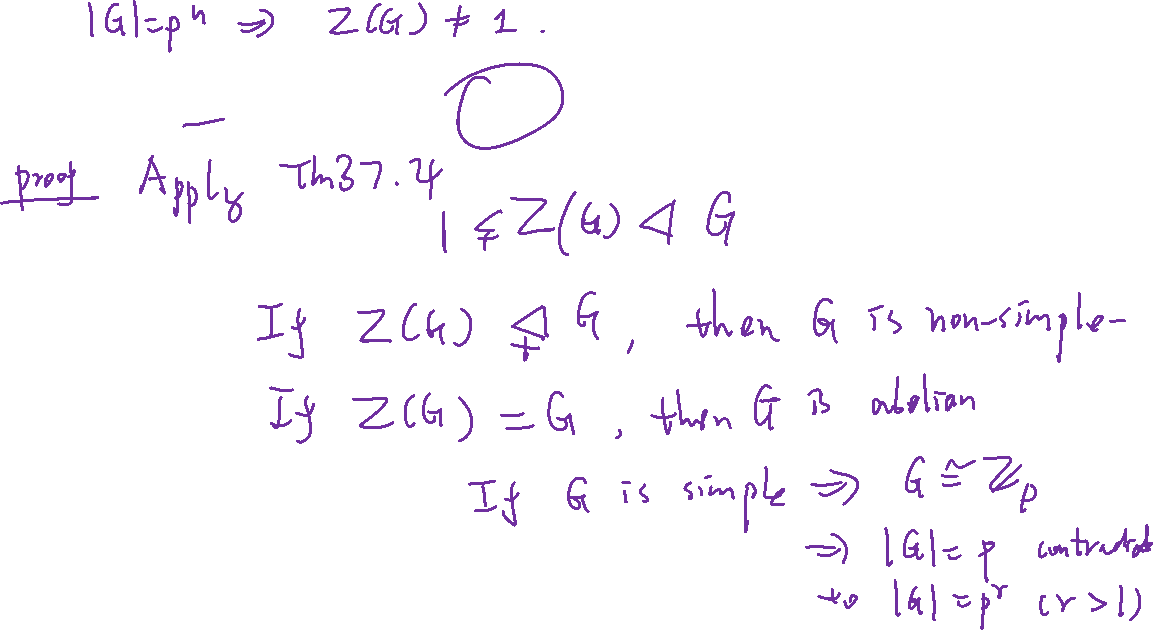 |G|=pⁿ ⇒ Z(G) ≠ 1.
proof Apply Th37.4
1 ⪇ Z(G) ◁ G
If Z(G) ⋪ G, then G is non-simple-
If Z(G) = G, then G is abelian
If G is simple ⇒ G ≅ ℤₚ
⇒ |G| = p contradict
to |G| = pʳ (r>1)